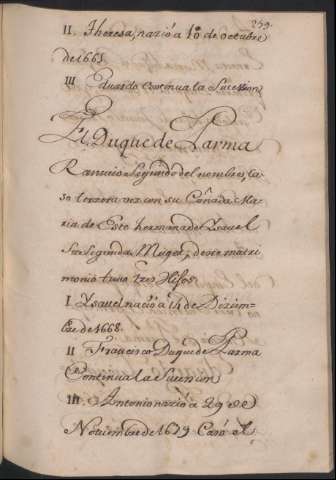 259.
II. Theresa, nazió a 10 de octubre
de 1665.
III Eduardo continua la Sucession
El Duque de Parma
Ranucio Segundo del nombre, ca
so tercera vez con su Cuñada Ma
ria de Este hermana de Ysauel
Su Segunda Muger, de este matri
monio tuuo tres Hijos
I. Ysauel nacio a 14 de Diziem-
bre de 1668.
II Francisco Duque de Parma
Continua la Sucesion
III. Antonio nazió a 29 de
Nouiembre de 1679 Casó el